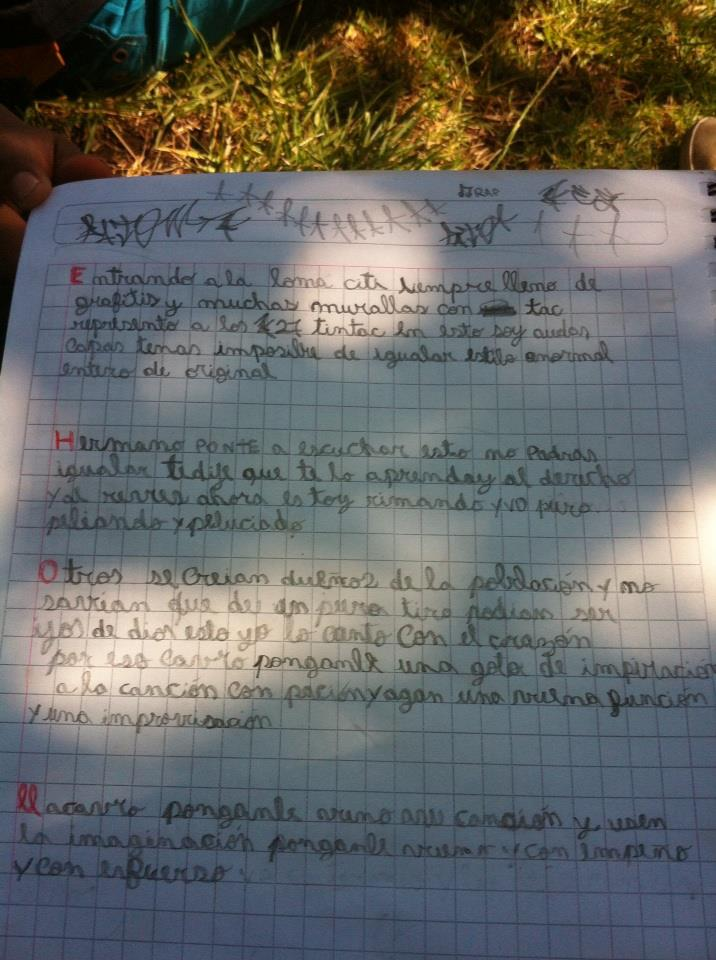 RAP
Entrando a la loma cita siempre lleno de
grafitis y muchas murallas con tac
represento a los tintac en esto soy audas
copas temas imposible de igualar estilo anormal
entero de original
Hermano PONTE a escuchar esto no Podras
igualar te dije que te lo aprendas y al derecho
y al reves ahora estoy rimando y yo puro
peliando y peluciado
Otros se creian dueños de la poblacion y no
savian que de un puro tiro podian ser
de dios esto yo lo canto con el corazón
por eso cavro ponganle una gota de impiración
a la canción con pación y agan una nuema función
y una improvisación
ll cavro ponganle a su canción y usen
la imaginación ponganle y con empeño
y con esfuerzo